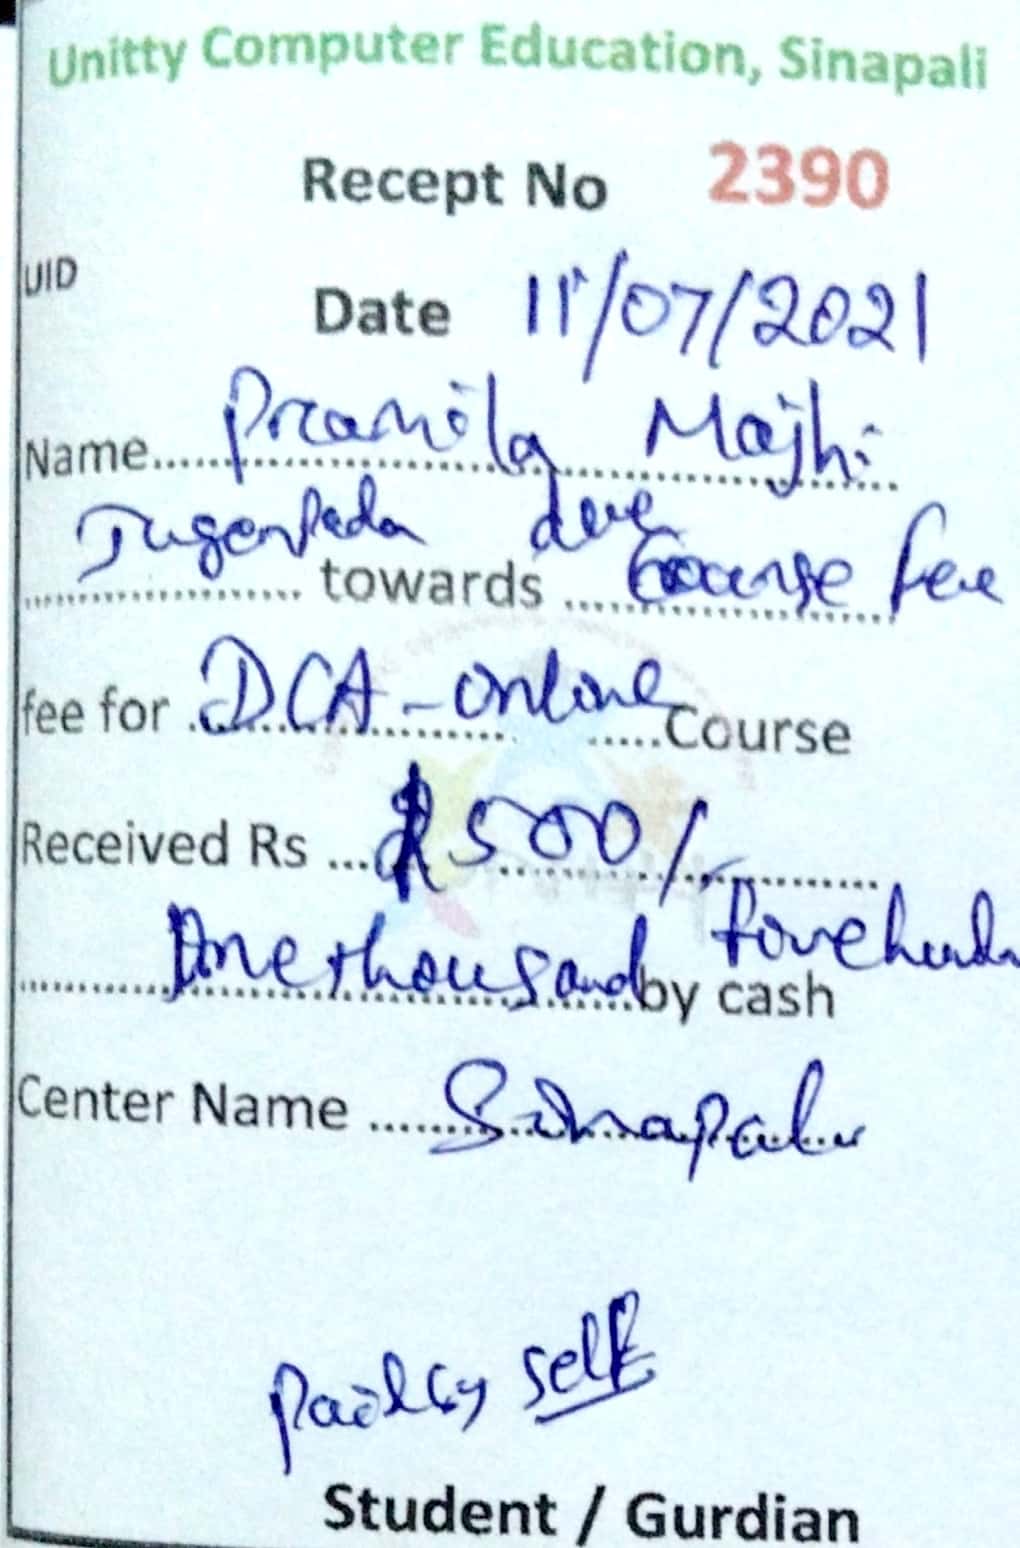 Unitty Computer Education, Sinapali
Recept No 2390
UID
Date 11/07/2021
Name...... Pramila Majhi
due
............ towards ...... Course fee
fee for ...... DCA - online ......Course
Received Rs ... 1500/-
One thousand five
............by cash
Center Name ...... Sinapali
Paid by self
Student / Gurdian